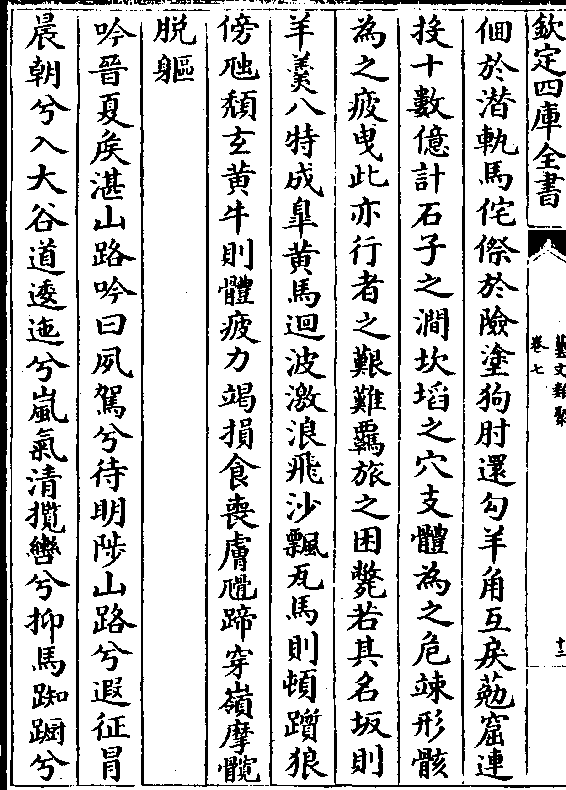 欽定四庫全書
藝文類聚
卷七
佪於潛軌馬侘傺於險塗狗肘還勾羊角互戾窟連
接十數億計石子之澗坎埳之穴支體為之危竦形骸
為之疲曳此亦行者之艱難羈旅之困斃若其名坂則
羊羹八特成臯黃馬迴波激浪飛沙飄瓦馬則頓躓狼
傍虺頽玄黃牛則體疲力竭損食喪膚蹄穿嶺摩髖
脱軀
吟晉夏矦湛山路吟曰夙駕兮待明陟山路兮遐征冒
晨朝兮入大谷道逶迤兮嵐氣清攬轡兮抑馬踟蹰兮